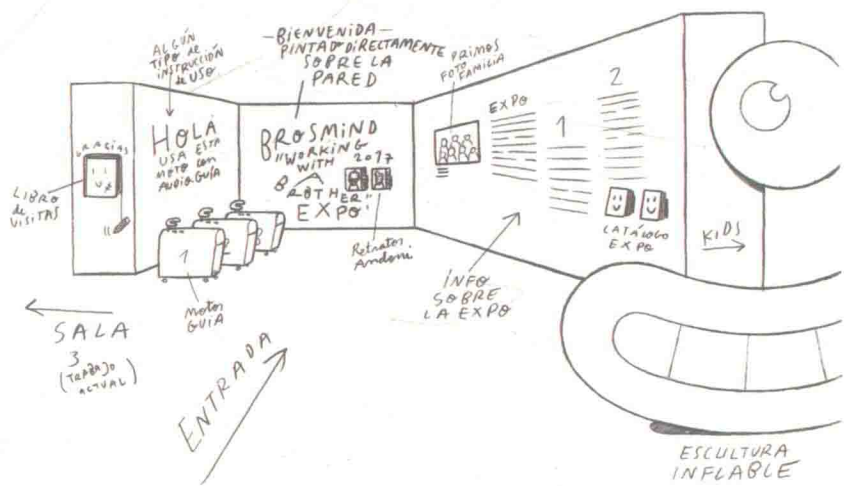 ALGÚN
TIPO de
INSTRUCCIÓN
de USO
—BIENVENIDA—
PINTADO DIRECTAMENTE
SOBRE LA
PARED
PRIMOS
FOTO FAMILIA
GRACIAS
LIBRO
de
VISITAS
HOLA
USA ESTA
MOTO con
AUDIOGUÍA
1
2
3
Motos
GUIA
BROSMIND
"WORKING
WITH 2017
BROTHER"
EXPO
Retratos
Andoni
EXPO
1
2
CATÁLOGO
EXPO
INFO
SOBRE
LA EXPO
KIDS
SALA
3
(TRABAJO
ACTUAL)
ENTRADA
ESCULTURA
INFLABLE